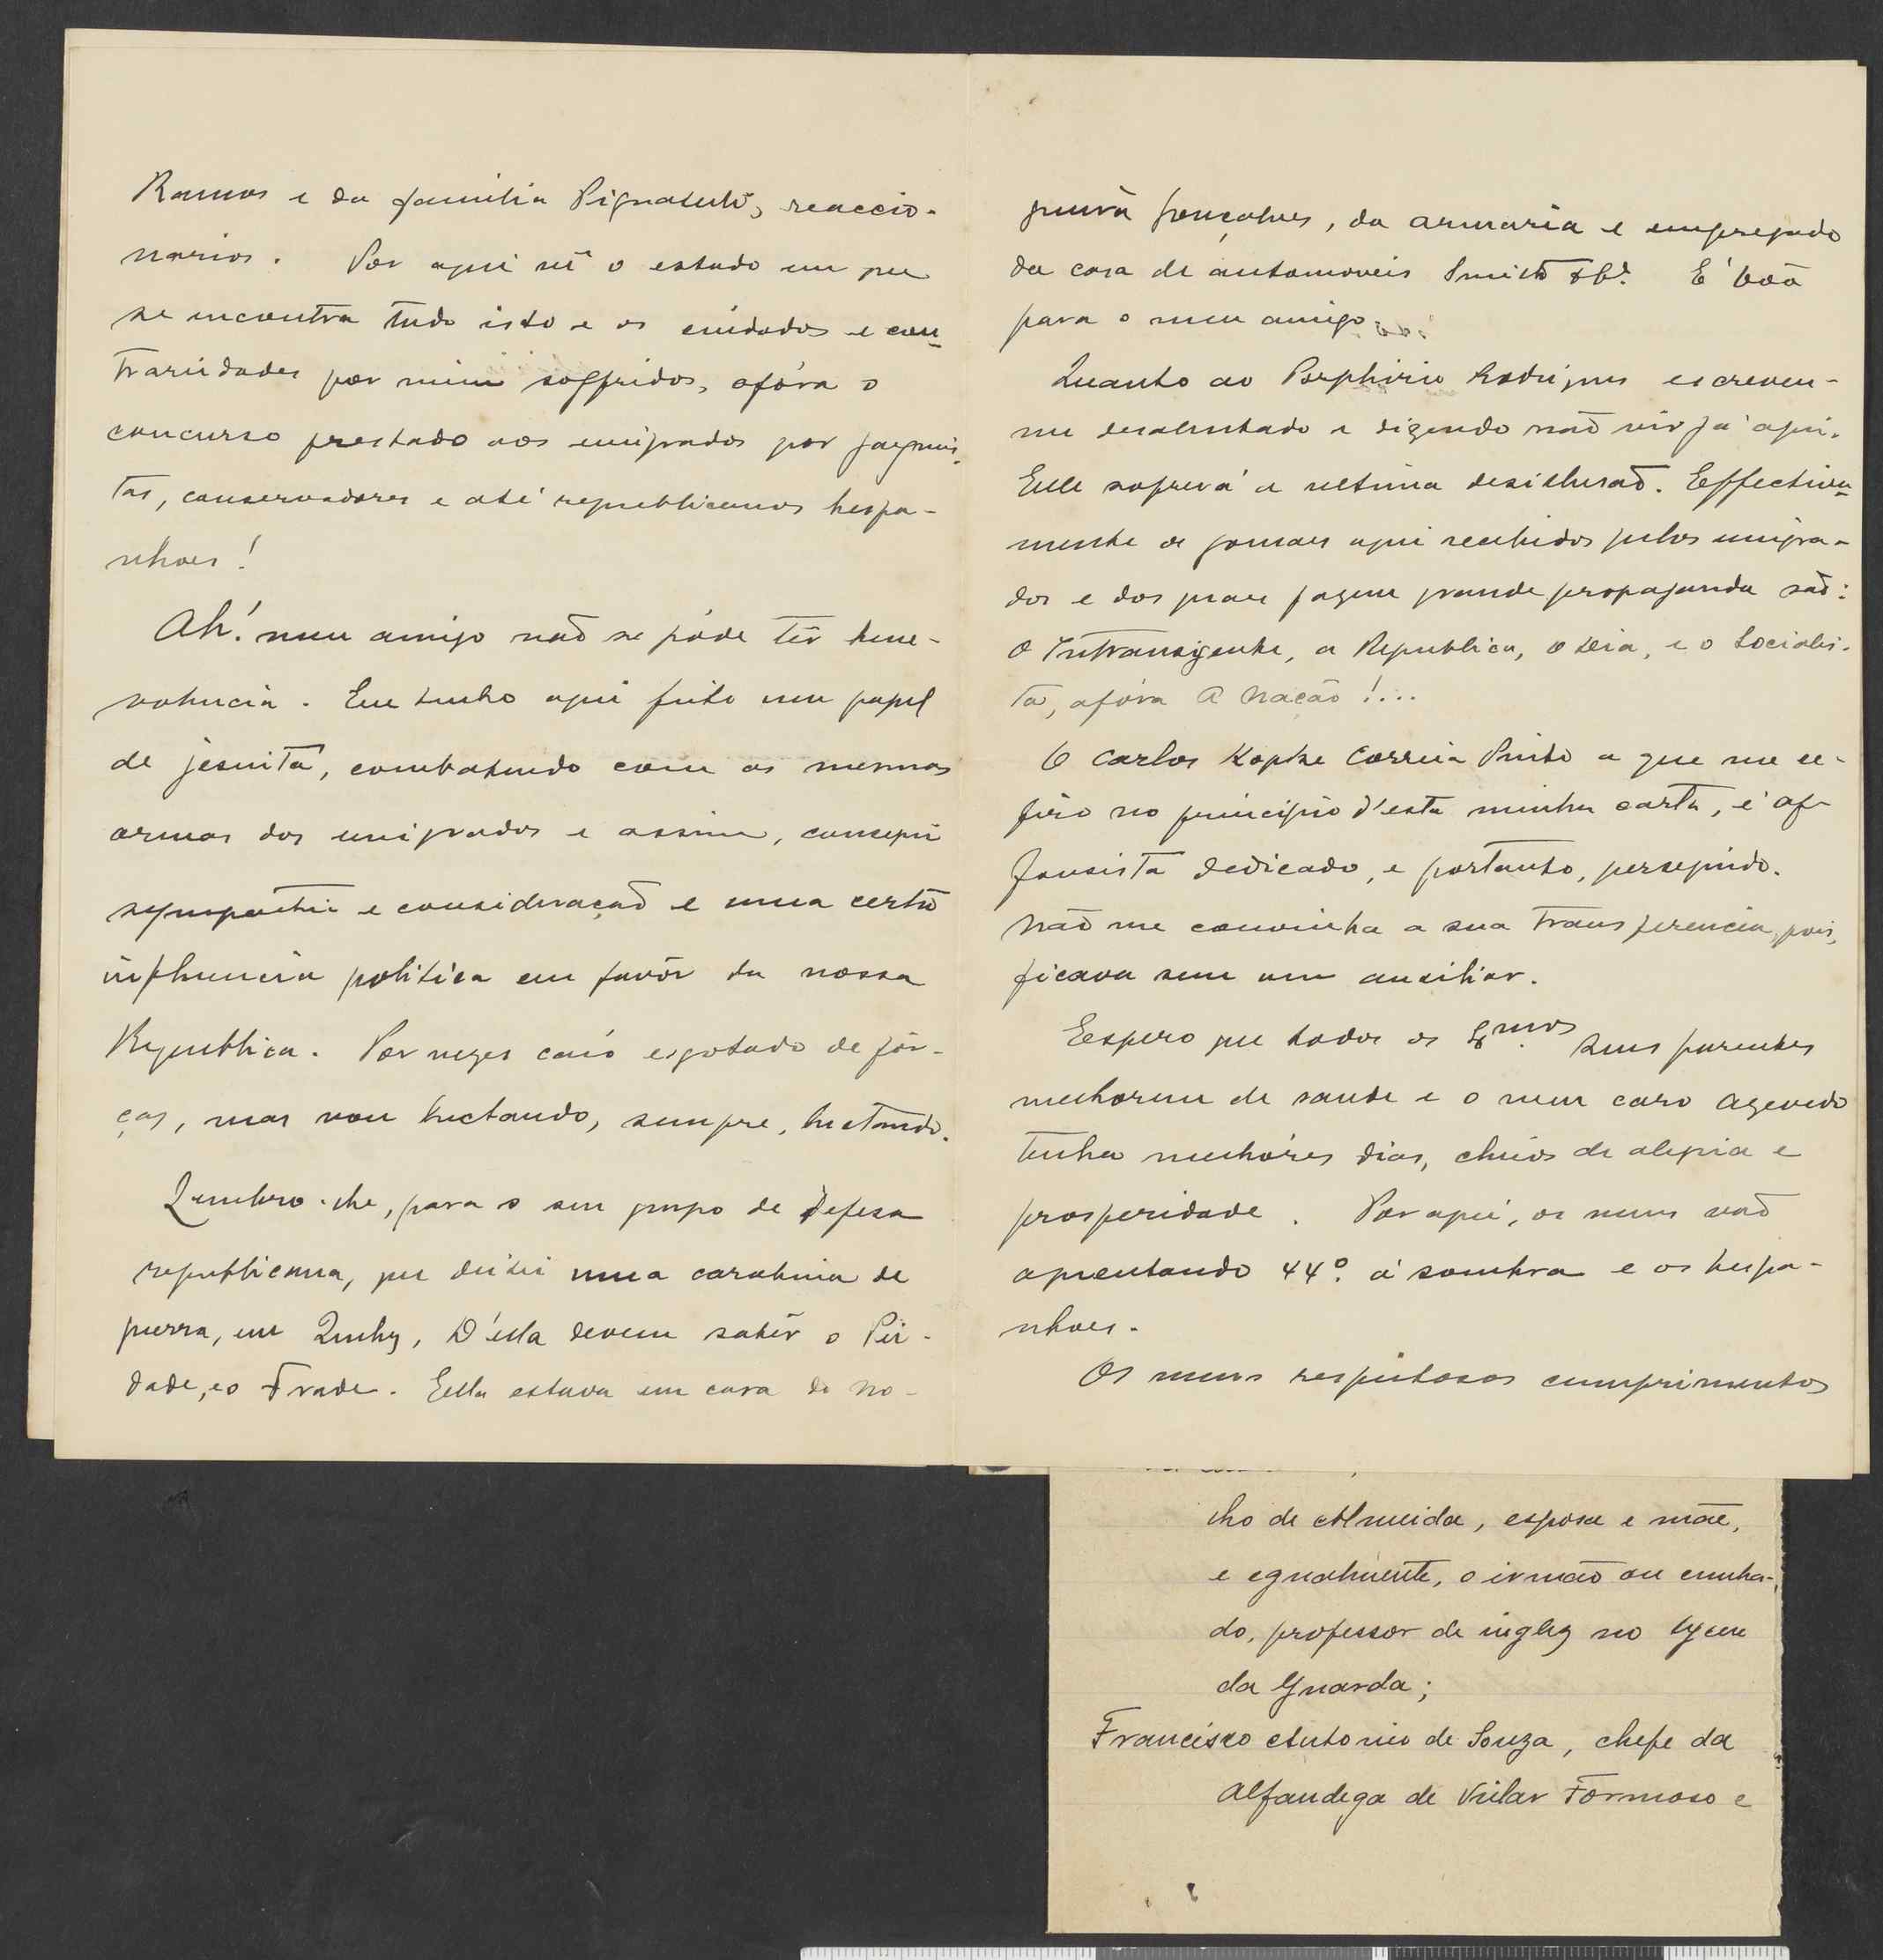 Ramos e da familia Pignatelli, reaccio-
narios. Por aqui vê o estado em que
se encontra tudo isto e os cuidados e con-
trariedades por mim soffridos, afóra o
concurso prestado aos emigrados por jaymis-
tas, conservadores e até republicanos hespa-
nhoes!
Ah! meu amigo não se póde têr bene-
volencia. Eu tenho aqui feito um papel
de jesuita, combatendo com as mesmas
armas dos emigrados e assim, consegui
sympathia e consideração e uma certa
influencia politica em favôr da nossa
Republica. Por vezes caío esgotado de fôr-
ças, mas vou luctando, sempre, luctando.
Lembro-lhe, para o seu grupo de defesa
republicana, que deixei uma carabina de
guerra, em . D'ella devem sabêr o Pie-
dade, e o Frade. Ella estava em casa do No-
gueira Gonçalves, da armaria e empregado
da casa de automoveis Smith & Cª. E' bôa
para o meu amigo.
Quanto ao Porphirio Rodrigues escreveu-
me desalentado e dizendo não vir já aqui.
Elle sofrerá a ultima desillusão. Effectiva-
mente os jornaes aqui recebidos pelos emigra-
dos e dos quaes fazem grande propaganda são:
O Intransigente, a Republica, o Dia, e o Socialis-
ta, afóra A Nação!...
O Carlos Kopke Correia Pinto a que me re-
firo no principio d'esta minha carta, é af-
fonsista dedicado, e portanto, perseguido.
Não me convinha a sua transferencia, pois,
ficava sem um auxiliar.
Espero que todos os Exmos. seus parentes
melhorem de saude e o meu caro Azevedo
tenha melhóres dias, cheios de alegria e
prosperidade. Por aqui, os meus vão
aguentando 44º. á sombra e os hespa-
nhoes.
Os meus respeitosos cumprimentos
lho de Almeida, esposa e mãe,
e egualmente, o irmão ou cunha-
do, professor de inglez no lyceu
da Guarda;
Francisco Antonio de Souza, chefe da
Alfandega de Villar Formoso e